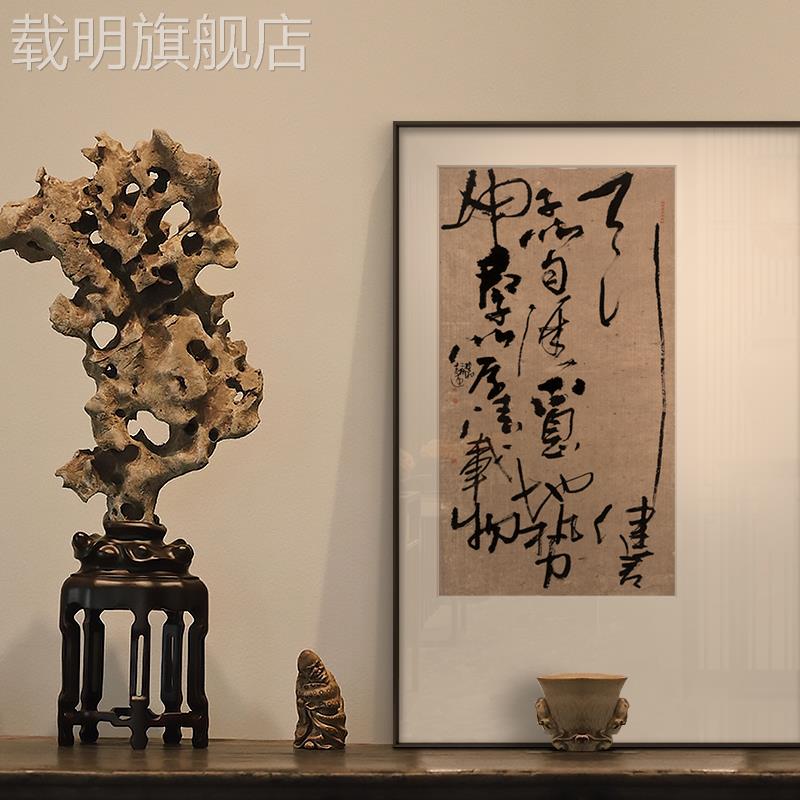 载明旗舰店
天行健君
子以自強不息地勢
坤君子以厚德載物